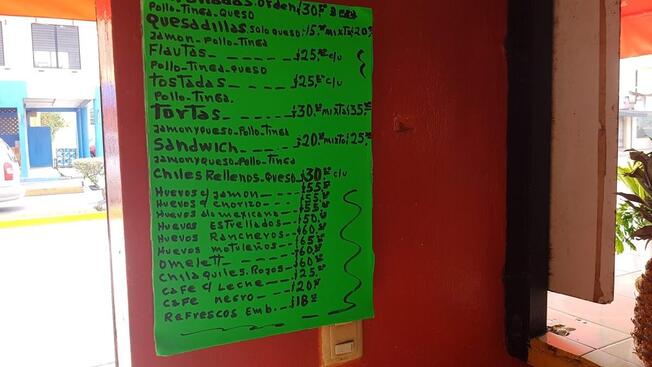 orden $30.00 
Pollo-Tinga-Queso
Quesadillas, solo queso $15.00 mixta $20.00
Jamon-Pollo-Tinga
Flautas $25.00 c/u
Pollo-Tinga-Queso
Tostadas $25.00 c/u
Pollo-Tinga.
Tortas $30.00 mixta $35.00
Jamon y queso-Pollo-Tinga
Sandwich $20.00 mixto $25.00
Jamon y queso-Pollo-Tinga
Chiles Rellenos-Queso $30.00 c/u
Huevos c/ jamon $55.00
Huevos c/ chorizo $55.00
Huevos ala mexicana $55.00
Huevos Estrellados $50.00
Huevos Rancheros $60.00
Huevos motuleños $65.00
Omelett $60.00
Chilaquiles. Rojos $60.00
Cafe c/ Leche $25.00
Cafe negro $20.00
Refrescos Emb. $18.00